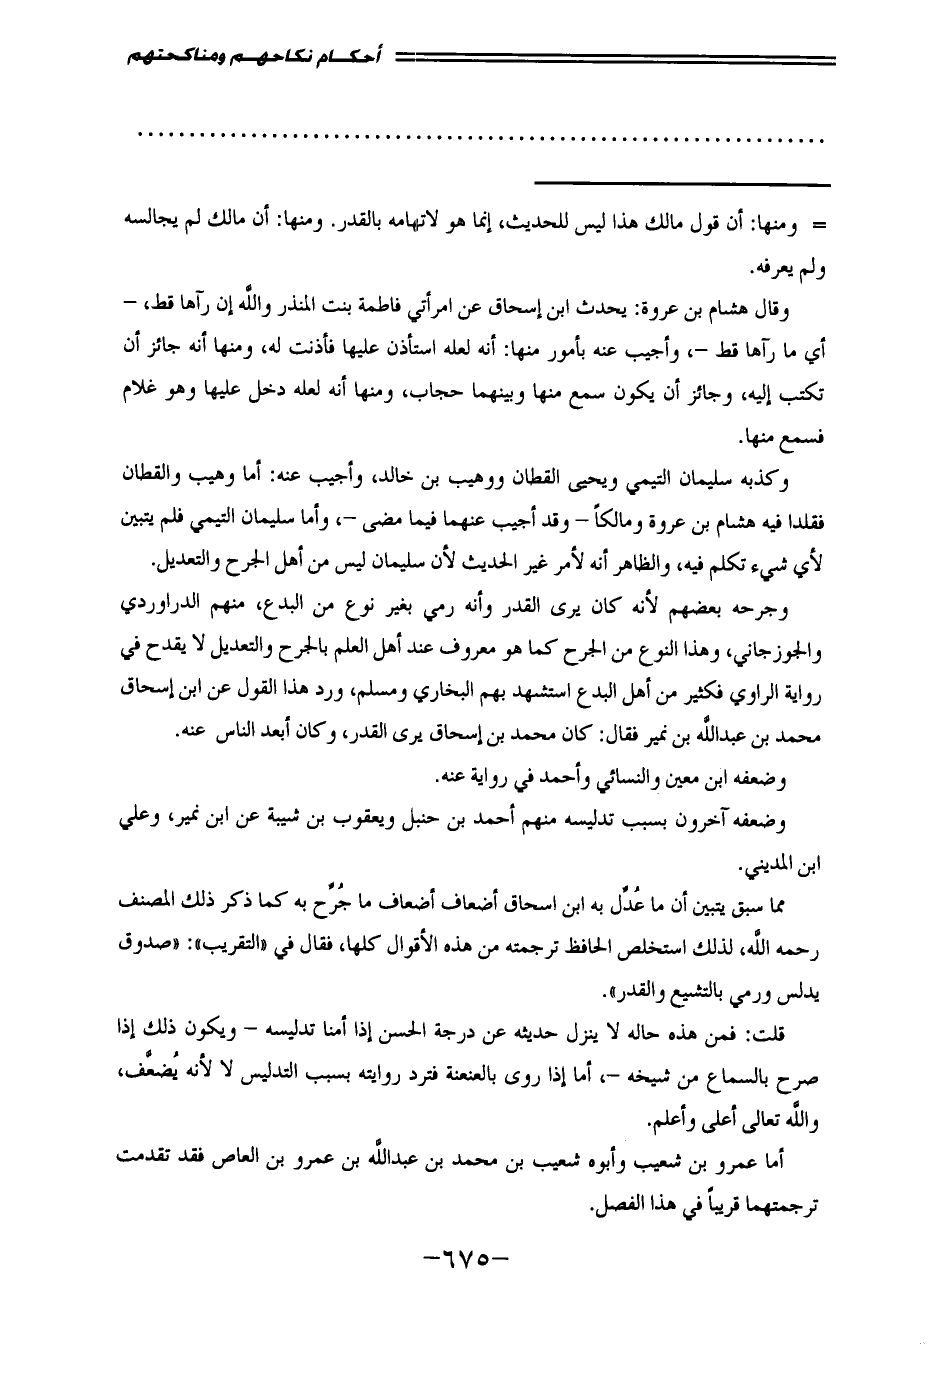 أحكام نكاحهم ومناكحتهم
= ومنها: أن قول مالك هذا ليس للحديث، إنما هو لاتهامه بالقدر. ومنها: أن مالك لم يجالسه
ولم يعرفه.
وقال هشام بن عروة: يحدث ابن إسحاق عن امرأتي فاطمة بنت المنذر والله إن رآها قط، –
أي ما رآها قط –، وأجيب عنه بأمور منها: أنه لعله استأذن عليها فأذنت له، ومنها أنه جائز أن
تكتب إليه، وجائز أن يكون سمع منها وبينهما حجاب، ومنها أنه لعله دخل عليها وهو غلام
فسمع منها.
وكذبه سليمان التيمي ويحيى القطان ووهيب بن خالد، وأجيب عنه: أما وهيب والقطان
فقلدا فيه هشام بن عروة ومالكاً – وقد أجيب عنهما فيما مضى –، وأما سليمان التيمي فلم يتبين
لأي شيء تكلم فيه، والظاهر أنه لأمر غير الحديث لأن سليمان ليس من أهل الجرح والتعديل.
وجرحه بعضهم لأنه كان يرى القدر وأنه رمي بغير نوع من البدع، منهم الدراوردي
والجوزجاني، وهذا النوع من الجرح كما هو معروف عند أهل العلم بالجرح والتعديل لا يقدح في
رواية الراوي فكثير من أهل البدع استشهد بهم البخاري ومسلم، ورد هذا القول عن ابن إسحاق
محمد بن عبدالله بن نمير فقال: كان محمد بن إسحاق يرى القدر، وكان أبعد الناس عنه.
وضعفه ابن معين والنسائي وأحمد في رواية عنه.
وضعفه آخرون بسبب تدليسه منهم أحمد بن حنبل ويعقوب بن شيبة عن ابن نمير، وعلي
ابن المديني.
مما سبق يتبين أن ما عُدِّل به ابن اسحاق أضعاف أضعاف ما جُرِّح به كما ذكر ذلك المصنف
رحمه الله، لذلك استخلص الحافظ ترجمته من هذه الأقوال كلها، فقال في «التقريب»: «صدوق
يدلس ورمي بالتشيع والقدر».
قلت: فمن هذه حاله لا ينزل حديثه عن درجة الحسن إذا أمنا تدليسه – ويكون ذلك إذا
صرح بالسماع من شيخه –، أما إذا روى بالعنعنة فترد روايته بسبب التدليس لا لأنه يُضعَّف،
والله تعالى أعلى وأعلم.
أما عمرو بن شعيب وأبوه شعيب بن محمد بن عبدالله بن عمرو بن العاص فقد تقدمت
ترجمتهما قريباً في هذا الفصل.
–٦٧٥–